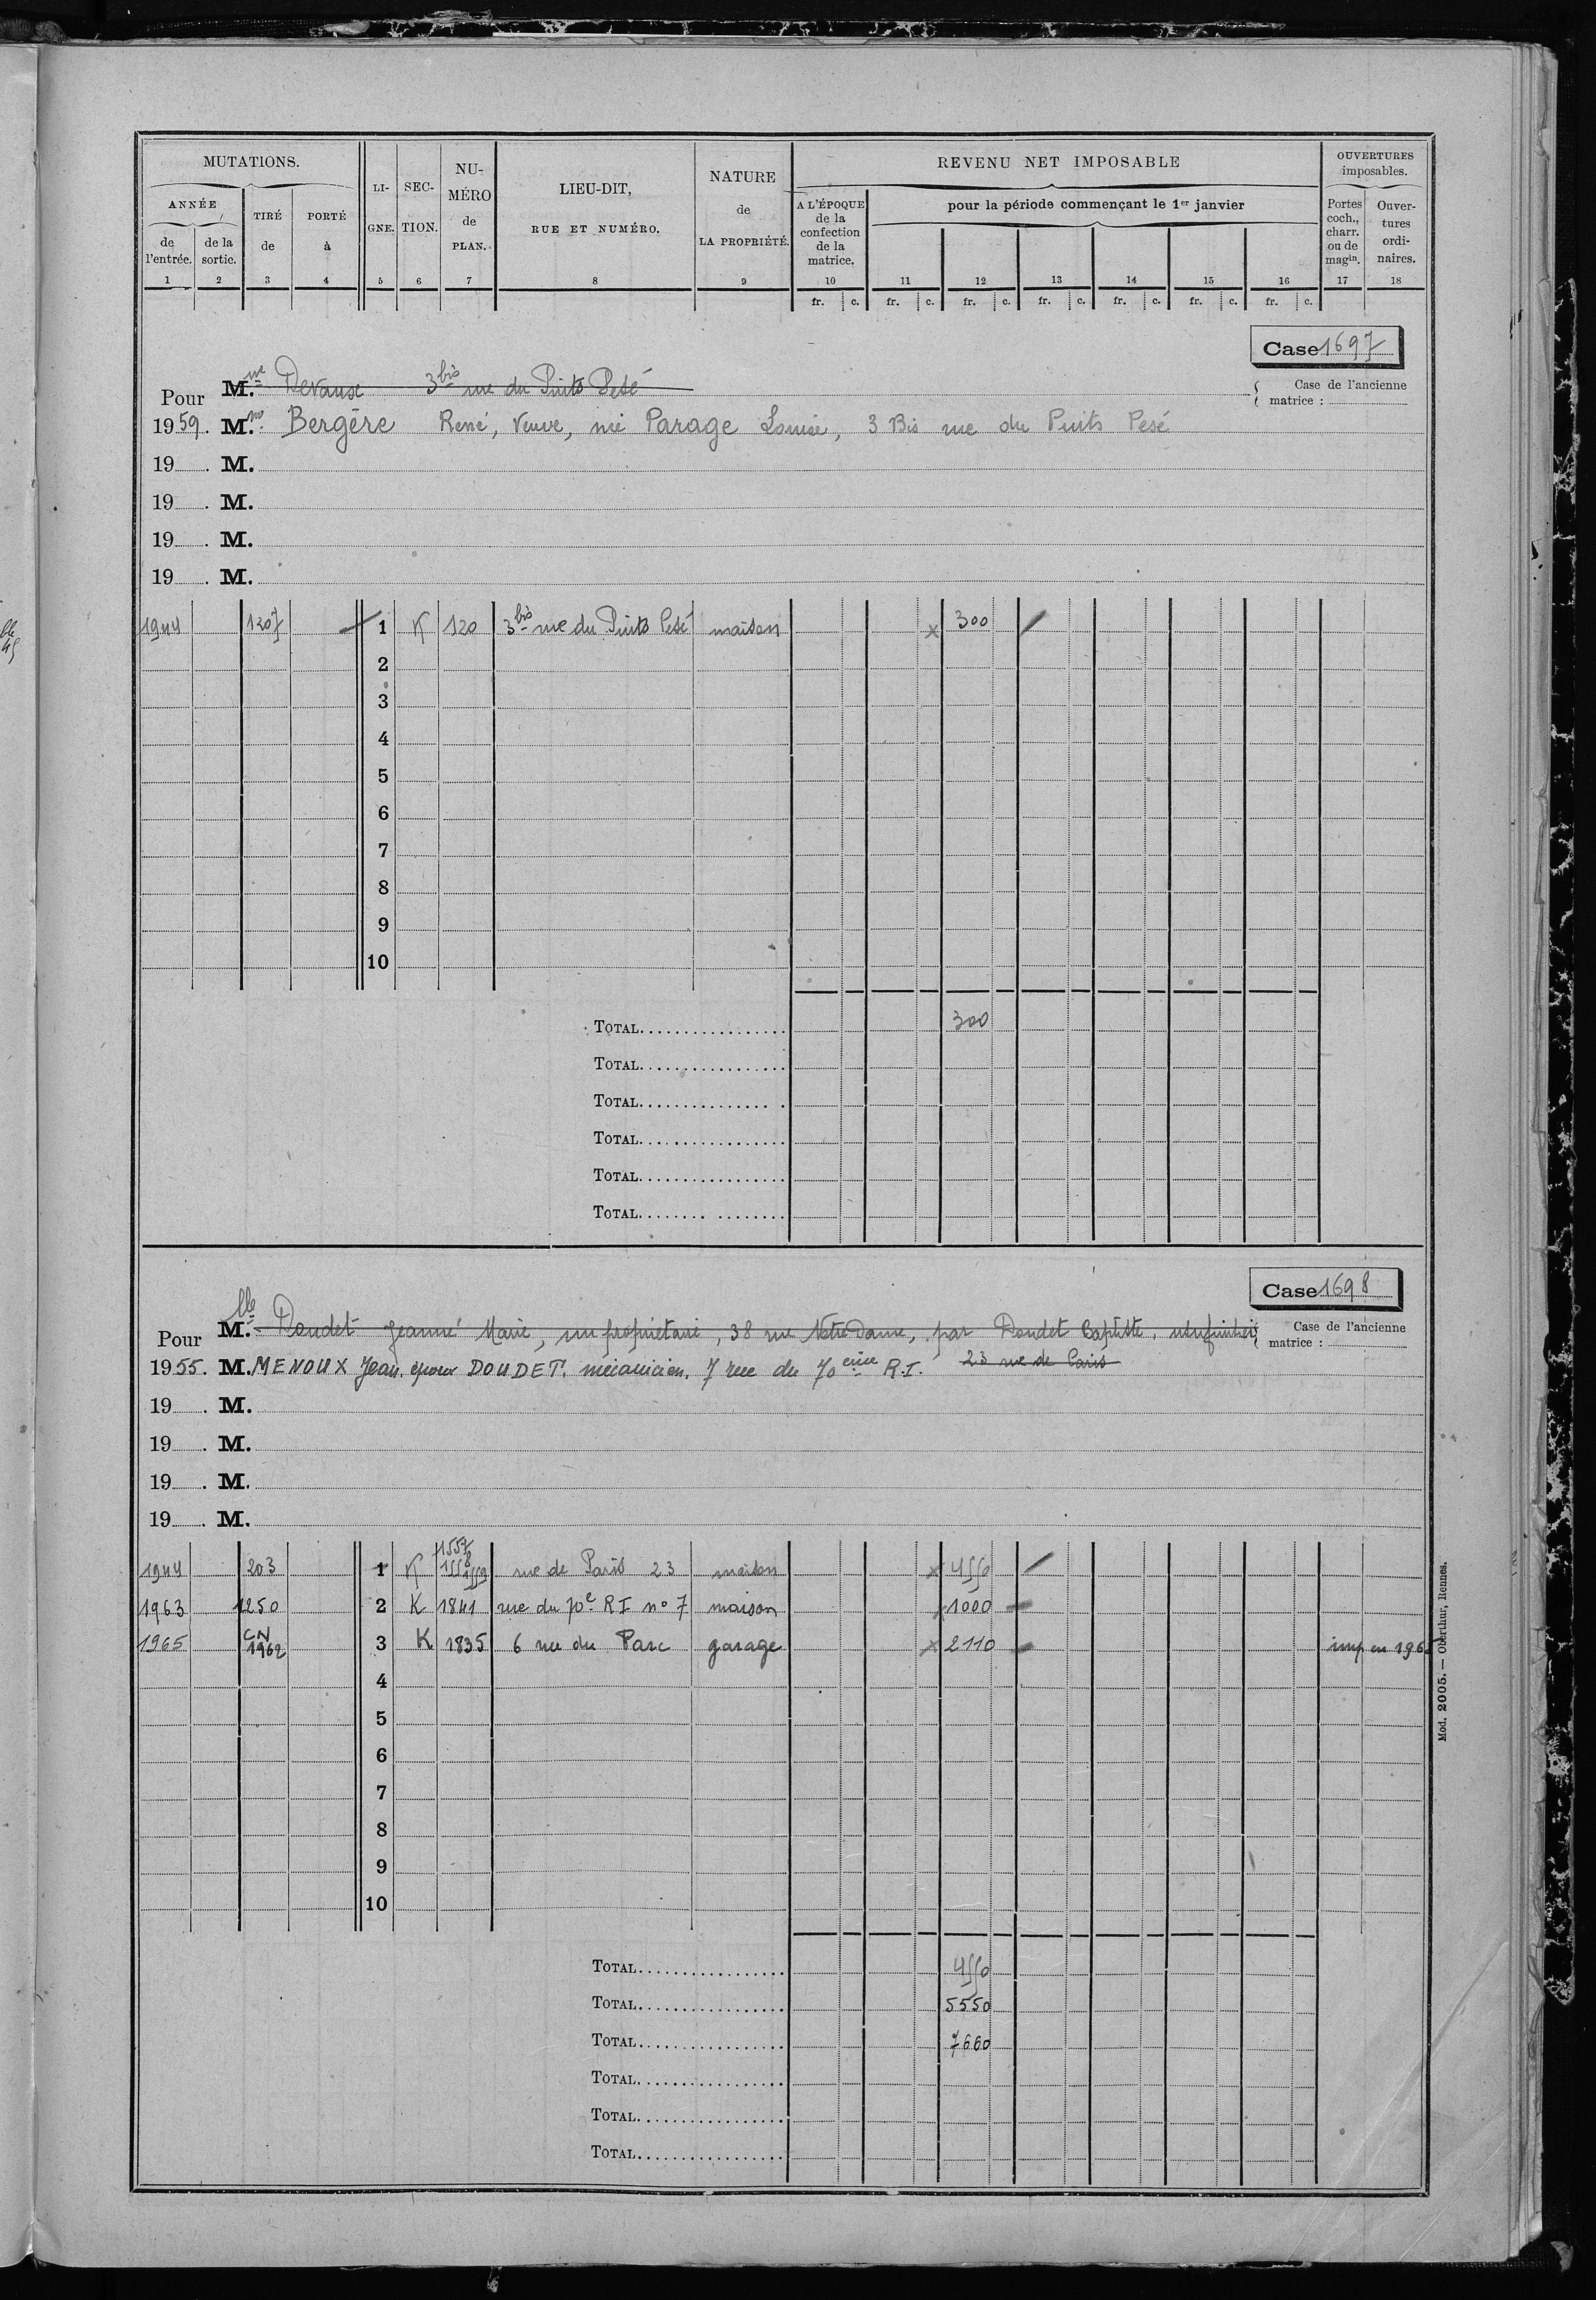 MUTATIONS.
ANNÉE
de l'entrée.
de la sortie.
TIRÉ de
PORTÉ à
LIGNE.
SECTION.
NUMÉRO de PLAN.
LIEU-DIT, RUE ET NUMÉRO.
NATURE de LA PROPRIÉTÉ.
REVENU NET IMPOSABLE
A L'ÉPOQUE de la confection de la matrice.
pour la période commençant le 1er janvier
OUVERTURES imposables.
Portes coch., charr. ou de magin.
Ouvertures ordinaires.
1 2 3 4 5 6 7 8 9 10 11 12 13 14 15 16 17 18
fr. c. fr. c. fr. c. fr. c. fr. c. fr. c. fr. c.
Case 1697
Pour M.me Devause 3bis rue du Puits Pesé
Case de l'ancienne matrice :
1959. M.me Bergère René, Veuve, née Parage Louise, 3 Bis rue du Puits Pesé
19 . M.
19 . M.
19 . M.
19 . M.
1944 1207 1 K 120 3bis rue du Puits Pesé maison x 300
2
3
4
5
6
7
8
9
10
TOTAL 300
TOTAL
TOTAL
TOTAL
TOTAL
TOTAL
Case 1698
Pour M.lle Doudet Jeanne Marie, nu propriétaire, 38 rue Notre Dame, par Doudet Baptiste, usufruitier
Case de l'ancienne matrice :
23 rue de Paris
1955. M. MENOUX Jean. époux DOUDET. mécanicien. 7 rue du 70eme R.I.
19 . M.
19 . M.
19 . M.
19 . M.
1944 203 1 K 1557 1558 1559 rue de Paris 23 maison x 4550
1963 1250 2 K 1841 rue du 70e R I n° 7 maison x 1000
1965 CN 1962 3 K 1835 6 rue du Parc garage x 2110 imp en 1965
4
5
6
7
8
9
10
TOTAL 4550
TOTAL 5550
TOTAL 7660
TOTAL
TOTAL
TOTAL
Mod. 2005. — Oberthur, Rennes.